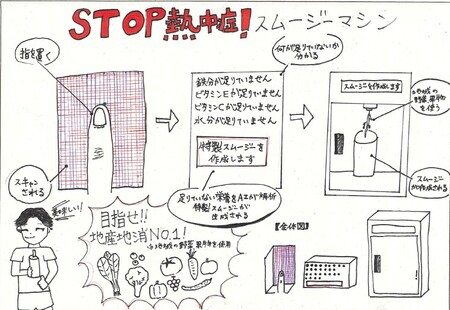 STOP熱中症!スムージーマシン
指を置く
スキャン
される
何が足りていないか
分かる
鉄分が足りていません
ビタミンEが足りていません
ビタミンCが足りていません
水分が足りていません
特製スムージーを
作成します
足りていない栄養をAIが解析
特製スムージーが
生成される
スムージーを作成します
野菜、果物
を使う
スムージー
が作成される
美味しい!
目指せ!!
地産地消NO.1!
野菜果物を使用
【全体図】